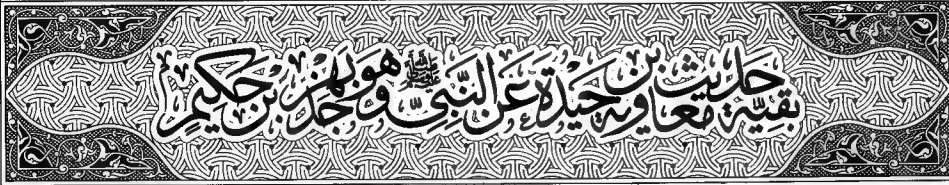 بَقِيَّةُ حَدِيثِ مُعَاوِيَةَ بْنِ حَيْدَةَ عَنِ النَّبِيِّ ﷺ وَهُوَ جَدُّ بَهْزِ بْنِ حَكِيمٍ